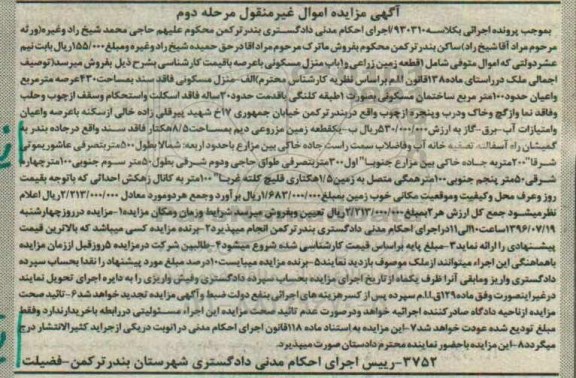 آگهی مزایده اموال غیرمنقول مرحله دوم
بموجب پرونده اجرائی بکلاسه ۹۳۰۳۱۰/اجرای احکام مدنی دادگستری بندرترکمن محکوم علیهم حاجی محمد شیخ راد وغیره(ورثه
مرحوم مراد آقا شیخ راد)ساکن بندرترکمن محکوم بفروش ماترک مرحوم مراد اقا درحق حمیده شیخ راد وغیره ومبلغ ۱۵۵/۰۰۰ریال بابت نیم
عشردولتی که اموال متوفی شامل (قطعه زمین زراعی و۱باب منزل مسکونی باعرصه باقیمت کارشناسی بشرح ذیل بفروش میرسد(توصیف
اجمالی ملک درراستای ماده۱۳۸قانون ا.ا.م براساس نظریه کارشناس محترم)الف-منزل مسکونی فاقد سند بمساحت۴۳۰عرصه مترمربع
واعیان حدود۱۰۰متر مربع ساختمان مسکونی بصورت ۱طبقه کلنگی باقدمت حدود۳۰ساله فاقد اسکلت واستحکام وسقف ازچوب وحلب
وفاقد نما وازگچ وخاک ودرب وپنجره ازچوب واقع دربندرترکمن خیابان جمهوری ۱۷خ شهید پیرقلی زاده خالی ازسکنه باعرصه واعیان
وامتیازات آب-برق-گاز به ارزش۵۳۰/۰۰۰/۰۰۰ریال ب-یکقطعه زمین مزروعی دیم بمساحت۸/۵هکتار فاقد سند واقع درجاده بندر به
گمیشان راه آسفالته تصفیه خانه آب وفاضلاب سمت راست جاده خاکی بین مزارع باحدود اربعه: شمالا بطول ۵۰۰متربتصرفی عاشوریموتی
شرقا"۲۰۰متربه جاده خاکی بین مزارع جنوبا" اول۳۰۰متربتصرفی طواق حاجی ودوم شرقی بطول۵۰متر سوم جنوبی۱۰۰مترچهارم
شرقی۵۰متر پنجم جنوبی۱۰۰مترهمگی متصل به زمین۱/۵هکتاری قلیچ کلته غربا" ۱۰۰متر به کانال زهکش احداثی که باتوجه بقیمت
روز وعرف محل وکیفیت وموقعیت مکانی خوب زمین بمبلغ۱/۶۸۳/۰۰۰/۰۰۰ریال برآورد وجمع هردومورد معادل ۲/۲۱۳/۰۰۰/۰۰۰ریال اعلام
نظرمیشود جمع کل ارزش هر۲بمبلغ۲/۲۱۳/۰۰۰/۰۰۰ریال تعیین وبفروش میرسد شرایط وزمان ومکان مزایده۱-مزایده درروزچهارشنبه
۱۳۹۶/۰۷/۱۹ساعت۱۰الی۱۱دراجرای احکام مدنی دادگستری بندرترکمن انجام میپذیرد۲-برنده مزایده کسی میباشد که بالاترین قیمت
پیشنهادی را ارائه نماید۳-مبلغ پایه براساس قیمت کارشناسی شده شروع میشود۴-طالبین شرکت درمزایده ۵روزقبل اززمان مزایده
باهماهنگی این اجراء میتوانند ازملک موصوف بازدید نمایند۵-برنده مزایده میبایست۱۰درصد مبلغ مورد پیشنهاد را نقدا بحساب سپرده
دادگستری واریز ومابقی آنرا ظرف یکماه از تاریخ اجرای مزایده بحساب سپرده دادگستری وفیش واریزی را به دایره اجرای تحویل نمایند
درغیراینصورت وفق ماده۱۲۹ق.ا.ا.م سپرده پس از کسرهزینه های اجرائی بنفع دولت ضبط وآگهی مزایده تجدید خواهد شد۶-تائید صحت
مزایده ازناحیه دادگاه صادرکننده اجرائیه خواهد ودرصورت عدم تائید صحت مزایده این اجراء مسئولیتی دررابطه باخریدارندارد وفقط
مبلغ تودیع شده عودت خواهد شد۷-این مزایده به استناد ماده ۱۱۸قانون اجرای احکام مدنی در۱نوبت دریکی ازجراید کثیرالانتشار درج
میگردد۸-این مزایده باحضور نماینده محترم دادستان صورت میپذیرد.
۳۷۵۲-رییس اجرای احکام مدنی دادگستری شهرستان بندرترکمن-فضیلت